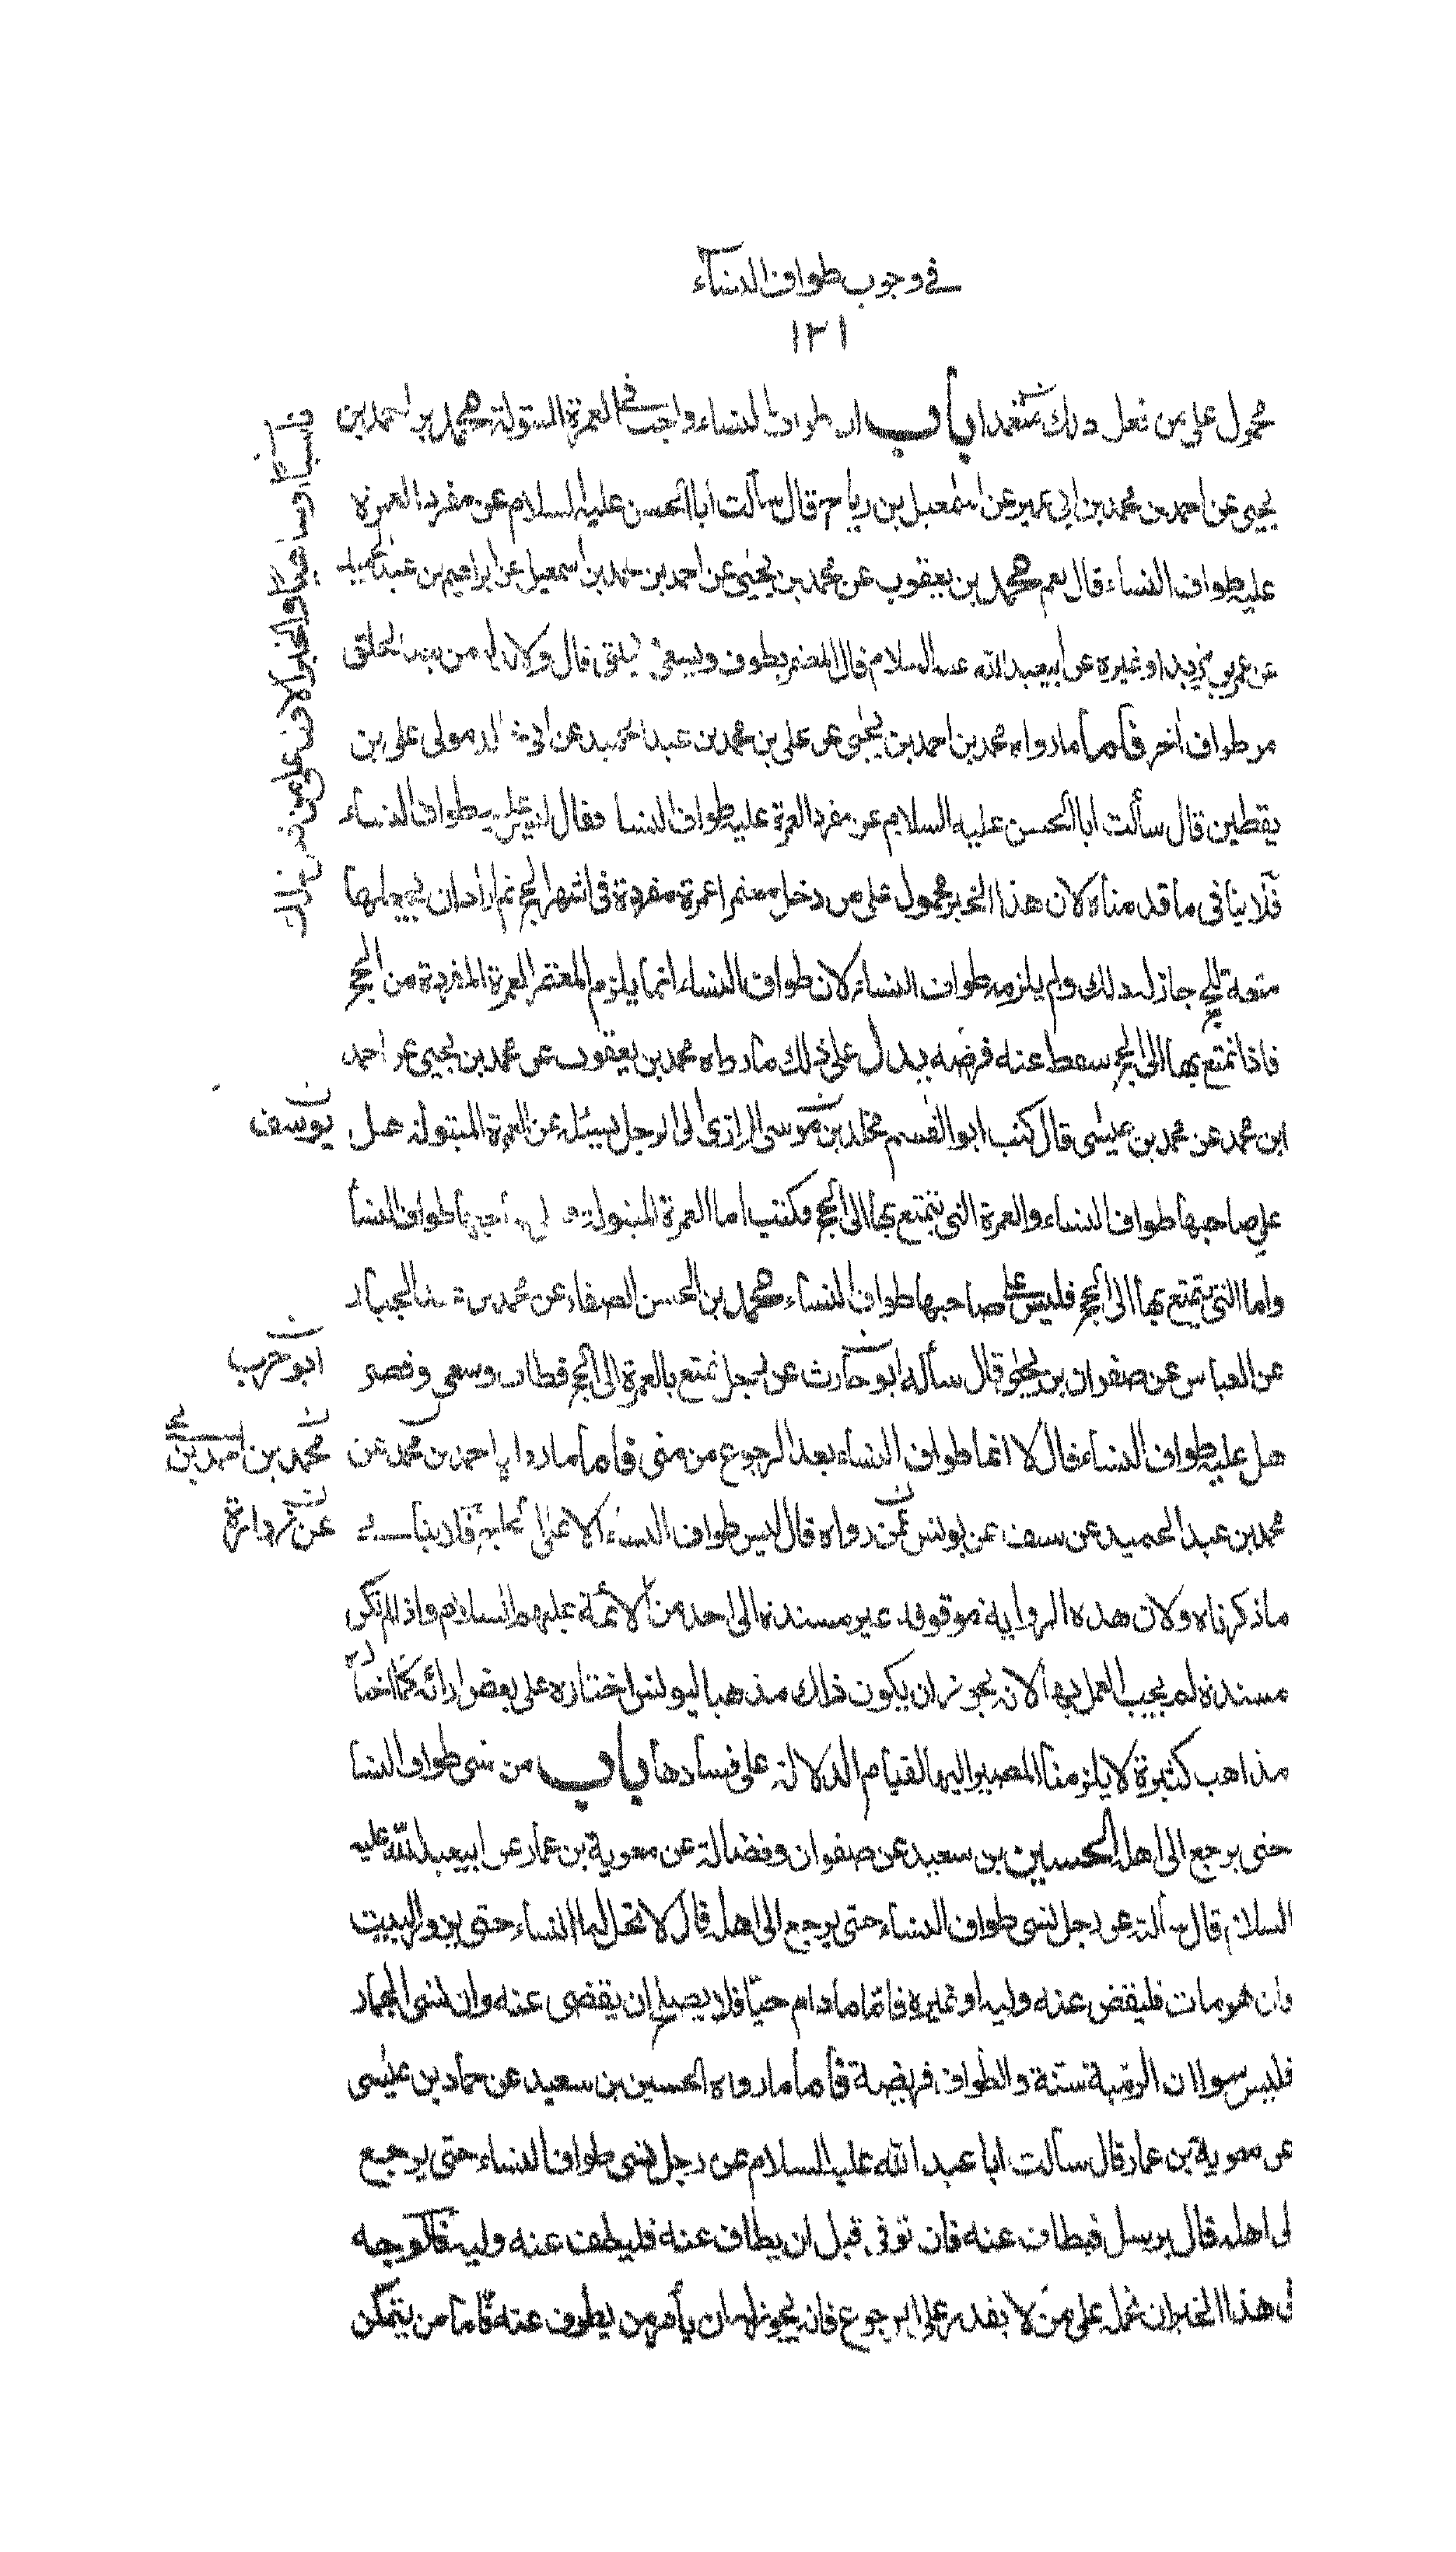 في وجوب طواف النساء
١٢١
محمول على من فعل ذلك متعمدا باب ان طواف النساء واجب في العمرة المبتولة محمد بن احمد بن
يحيى عن احمد بن محمد بن ابي عمير عن اسمعيل بن رياح قال سألت ابا الحسن عليه السلام عن مفرد العمرة
عليه طواف النساء قال نعم محمد بن يعقوب عن محمد بن يحيى عن احمد بن محمد بن اسمعيل عن ابراهيم بن عبدالحميد
عن عمر بن يزيد او غيره عن ابيعبدالله عليه السلام قال المعتمر يطوف ويسعى يحلق قال ولابد له من بعد الحلق
من طواف اخر فأما ما رواه محمد بن احمد بن يحيى عن علي بن محمد بن عبد الحميد عن ابي خالد مولى علي بن
يقطين قال سألت ابا الحسن عليه السلام عن مفرد العمرة عليه طواف النساء فقال ليس عليه طواف النساء
فلا ينافي ما قدمناه لان هذا الخبر محمول على من دخل معتمرا عمرة مفردة في اشهر الحج ثم اراد ان يجعلها
متعة للحج جاز له ذلك ولم يلزمه طواف النساء لان طواف النساء انما يلزم المعتمر العمرة المفردة من الحج
فاذا تمتع بها الى الحج سقط عنه فرضه يدل على ذلك ما رواه محمد بن يعقوب عن محمد بن يحيى عن احمد
ابن محمد عن محمد بن عيسى قال كتب ابو القسم مخلد بن موسى الرازي الى الرجل يسئله عن العمرة المبتولة هل
يوسف
على صاحبها طواف النساء والعمرة التي يتمتع بها الى الحج فكتب اما العمرة المبتولة فعلى صاحبها طواف النساء
واما التي يتمتع بها الى الحج فليس على صاحبها طواف النساء محمد بن الحسن الصفار عن محمد بن عبد الجبار
عن العباس عن صفوان بن يحيى قال سأله ابو حارث عن رجل تمتع بالعمرة الى الحج فطاف وسعى وقصر
ابو حرب
هل عليه طواف النساء قال لا انما طواف النساء بعد الرجوع من منى فأما ما رواه احمد بن محمد عن
محمد بن احمد بن
محمد بن عبد الحميد عن سيف عن يونس عمن رواه قال ليس طواف النساء الا على الحاج فلا ينافي
عن زرارة
ما ذكرناه ولان هذه الرواية موقوفة غير مسندة الى احد من الائمة عليهم السلام واذا لم تكن
مسندة لم يجب العمل بها لانه يجوز ان يكون ذلك مذهبا ليونس اختاره على بعض ارائه كما اختار
مذاهب كثيرة لا يلزمنا المصير اليها لقيام الدلالة على فسادها باب من نسي طواف النساء
حتى يرجع الى اهله الحسين بن سعيد عن صفوان وفضالة عن معوية بن عمار عن ابيعبدالله عليه
السلام قال سألته عن رجل نسي طواف النساء حتى يرجع الى اهله قال لا تحل له النساء حتى يزور البيت
وان هو مات فليقض عنه وليه او غيره فاما ما دام حيا فلا يصلح ان يقضى عنه وان نسي الجمار
فليس سوا ان الرمية سنة والطواف فريضة فأما ما رواه الحسين بن سعيد عن حماد بن عيسى
عن معوية بن عمار قال سألت ابا عبد الله عليه السلام عن رجل نسي طواف النساء حتى يرجع
الى اهله قال يرسل فيطاف عنه فان توفي قبل ان يطاف عنه فليطف عنه وليه فالوجه
في هذا الخبر ان نحمله على من لا يقدر على الرجوع فانه يجوز له ان يأمر من يطوف عنه فأما من يتمكن